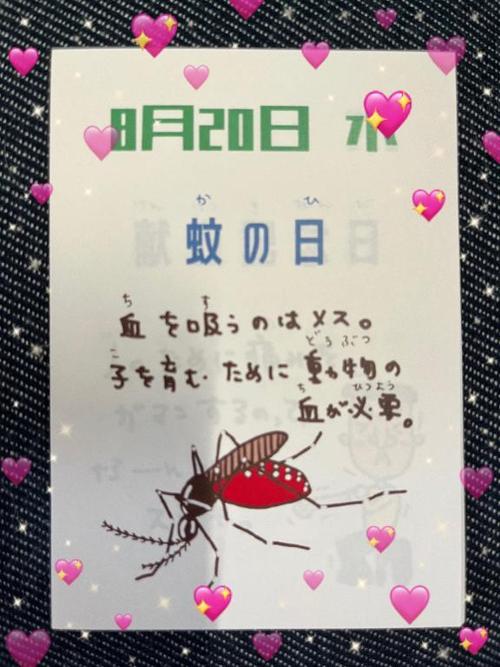 8月20日 水
か ひ
蚊の日
ち す
血を吸うのはメス。
こ どうぶつ
子を育む ために 動物の
ち ひつよう
血が必要。